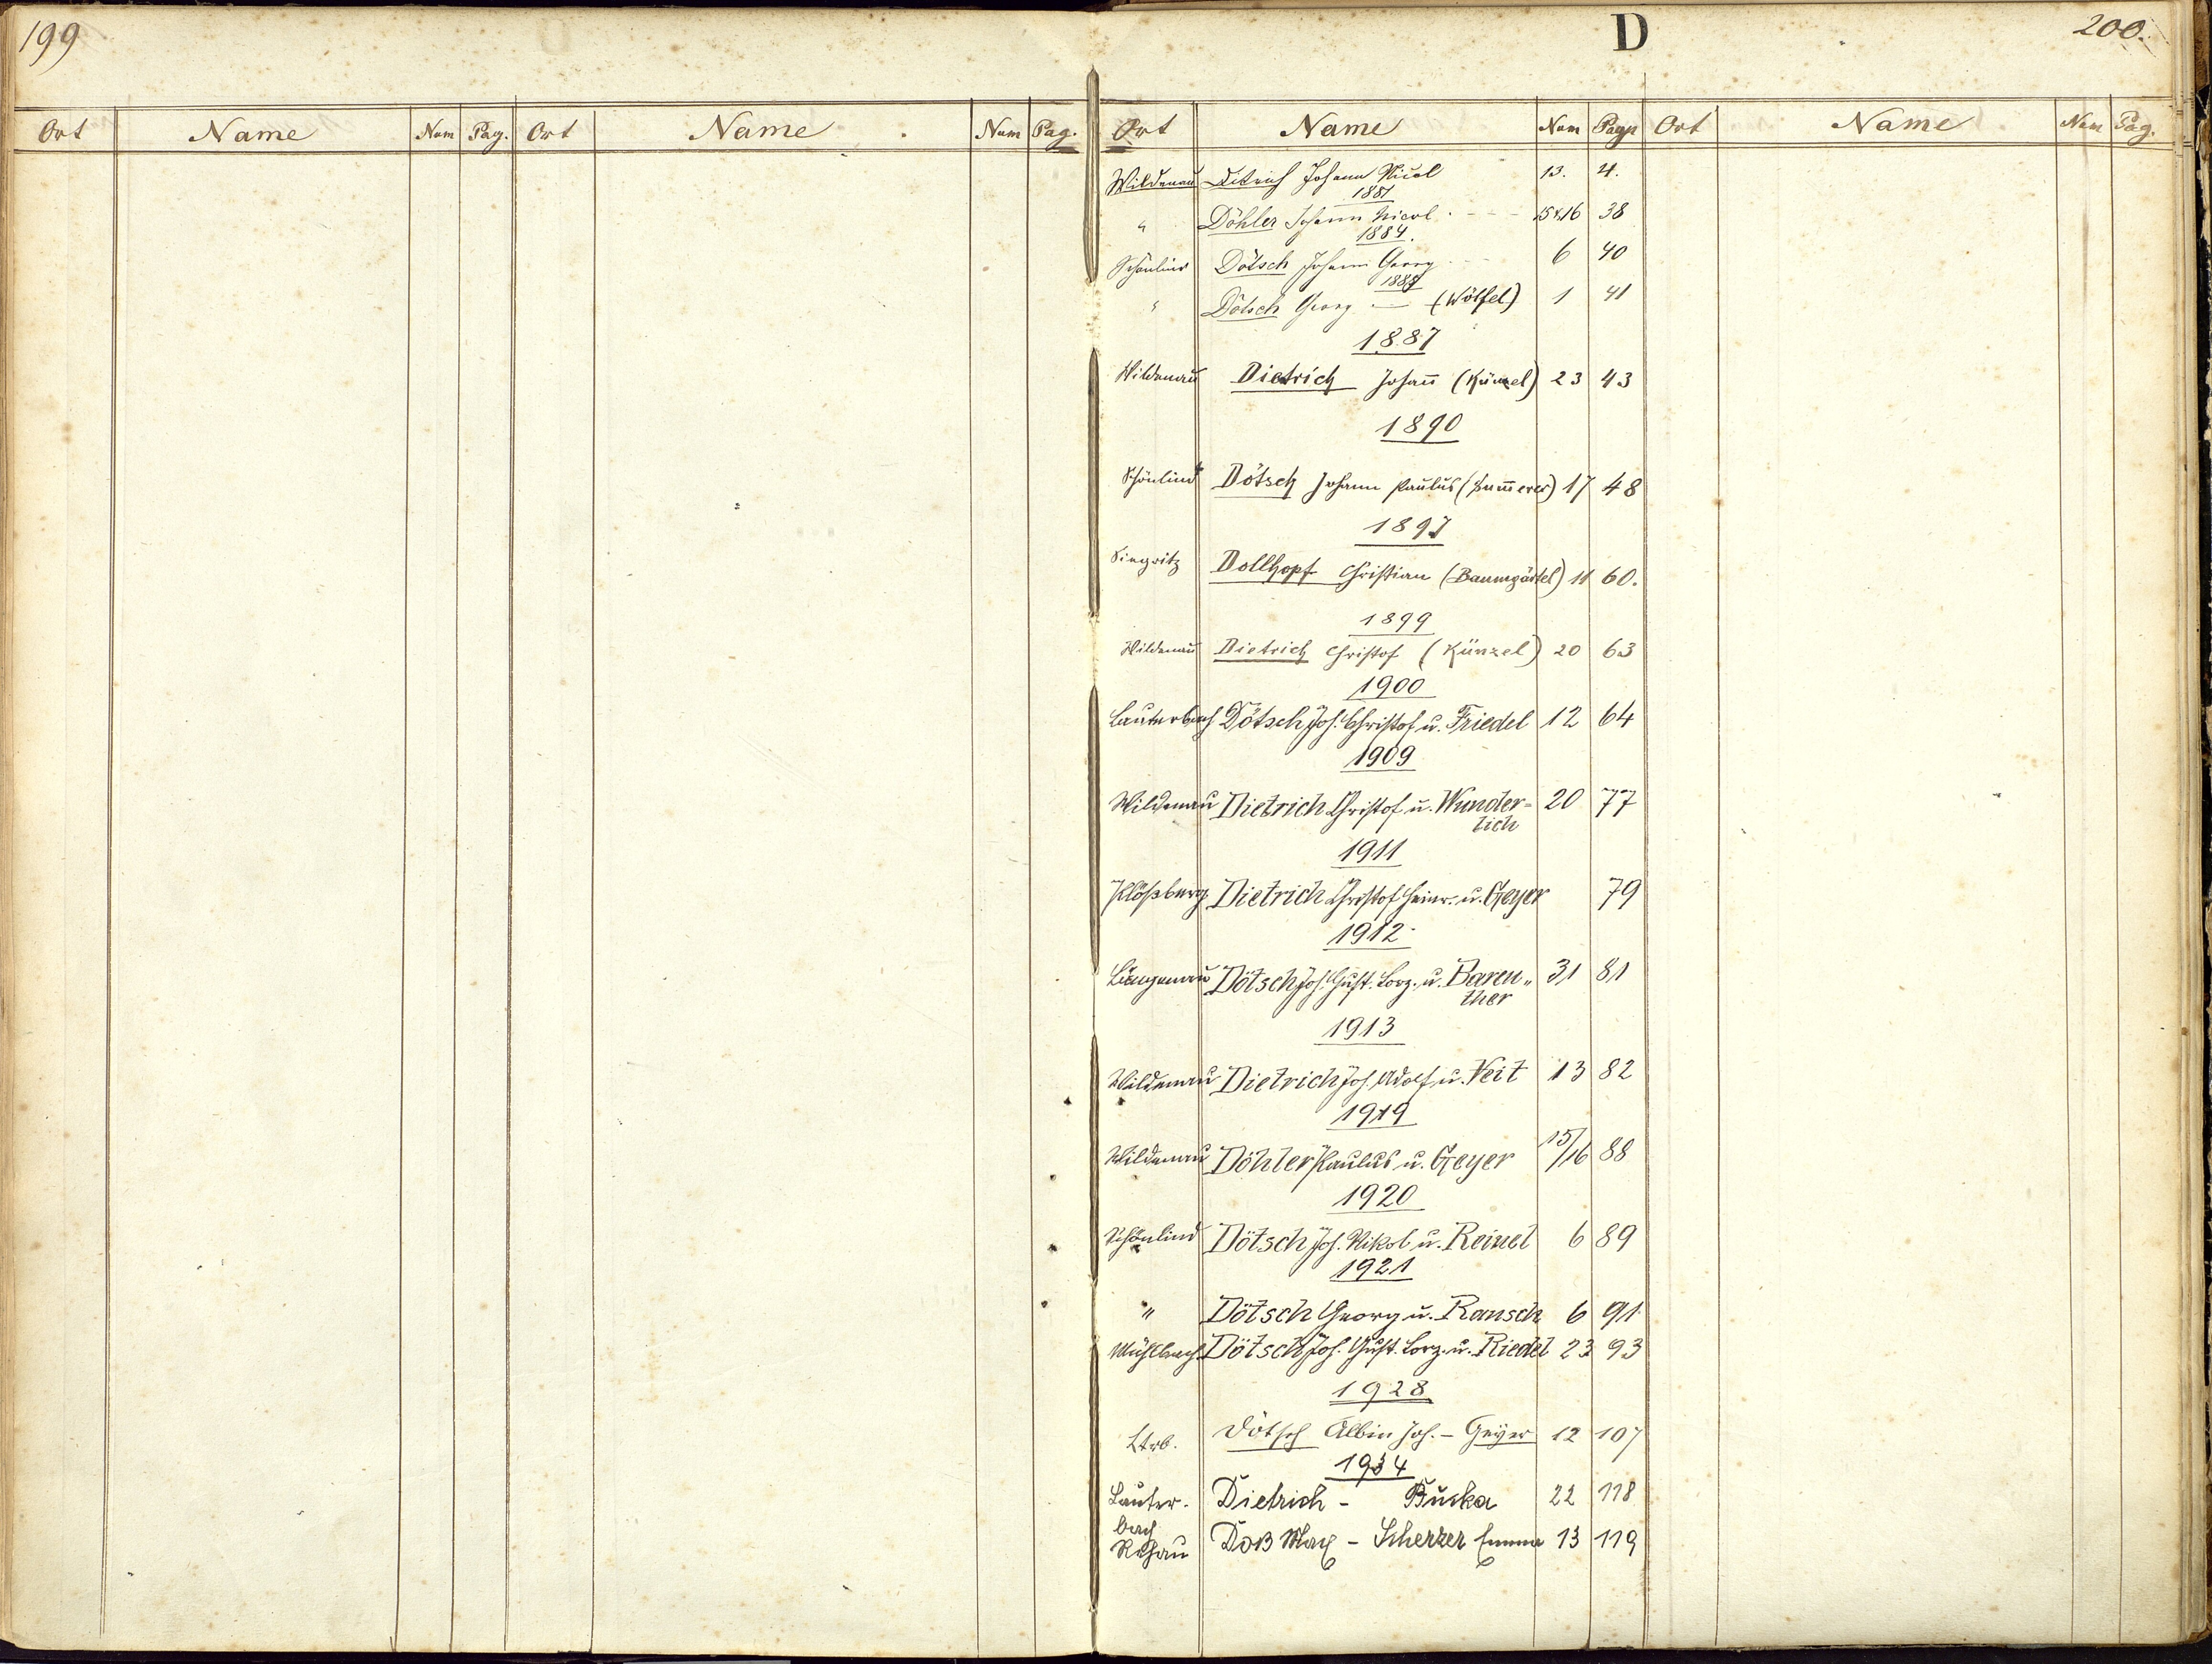 199
D
200.
Ort Name Num Pag. Ort Name Num Pag.
Ort Name Num Page Ort Name Num Pag.
Wildenau Dietrich Johann Nicol 13. 4.
1881
" Döhler Johann Nicol 15 & 16 38
1884.
Schönlind Dötsch Johann Georg 6 40
1885
" Dötsch Georg — (Wölfel) 1 41
1887
Wildenau Dietrich Johañ (Künzel) 23 43
1890
Schönlind Dötsch Johann Paulus (Sum̃erer) 17 48
1897
Siegritz Dollhopf Christian (Baumgärtel) 11 60.
1899
Wildenau Dietrich Christof (Künzel) 20 63
1900
Lauterbach Dötsch Joh. Christof u. Friedel 12 64
1909
Wildenau Dietrich Christof u. Wunder= 20 77
lich
1911
Klößberg Dietrich Christof Heinr. u. Geyer 79
1912
Längenau Dötsch Joh. Gust. Lorz. u. Bareu= 31 81
ther
1913
Wildenau Dietrich Joh. Adolf u. Veit 13 82
1919
Wildenau Döhler Paulus u. Geyer 15/16 88
1920
Schönlind Dötsch Joh. Nikol u. Reinel 6 89
1921
" Dötsch Georg u. Rausch 6 91
Mühlbach Dötsch Joh. Gust. Lorz. u. Riedel 23 93
1928
Ltrb. Dötsch Albin Joh. – Geyer 12 107
1934
Lauter- Dietrich – Bucka 22 118
bach
Rehau Doß Max – Scherzer Emma 13 119